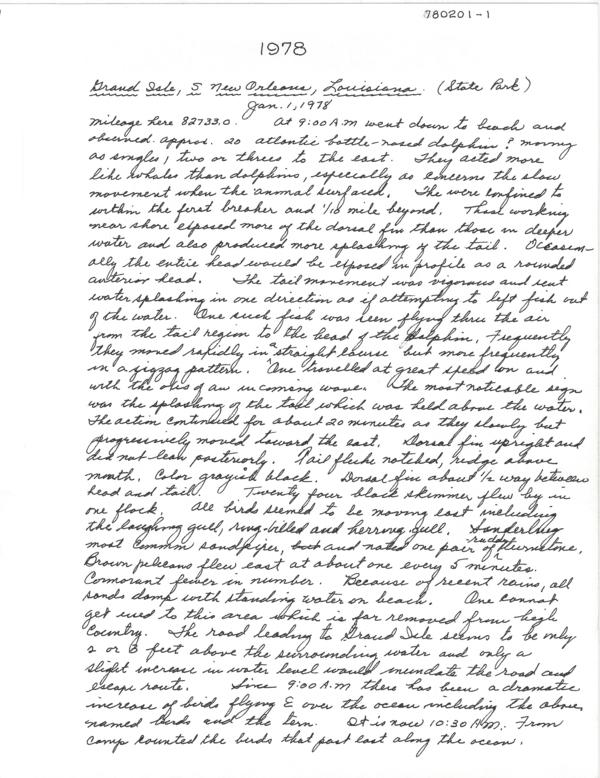 780201-1
1978
Grand Isle, S New Orleans, Louisiana. (State Park)
Jan. 1, 1978
mileage here 82733.0. At 9:00 A.M went down to beach and
observed approx. 20 atlantic bottle-nosed dolphin? moving
as singles, two or threes to the east. They acted more
like whales than dolphins, especially as concerns the slow
movement when the animal surfaced. The were confined to
within the first breaker and 1/10 mile beyond. Those working
near shore exposed more of the dorsal fin than those in deeper
water and also produced more splashing of the tail. Occasion-
ally the entire head would be exposed in profile as a rounded
anterior head. The tail movement was vigorous and sent
water splashing in one direction as if attempting to left fish out
of the water. One such fish was seen flying thru the air
from the tail region to the head of the dolphin. Frequently
they moved rapidly in a straight course but more frequently
in a zigzag pattern. One travelled at great speed on and
with the axis of an incoming wave. The most noticeable sign
was the splashing of the tail which was held above the water.
The action continued for about 20 minutes as they slowly but
progressively moved toward the east. Dorsal fin upright and
did not lean posteriorly. Tail fluke notched, ridge above
mouth. Color grayish black. Dorsal fin about 1/2 way between
head and tail. Twenty four black skimmer flew by in
one flock. All birds seemed to be moving east including
the laughing gull, ring-billed and herring gull. Sanderling
most common sandpiper, but and noted one pair of ruddy turnstone.
Brown pelicans flew east at about one every 5 minutes.
Cormorant fewer in number. Because of recent rains, all
sands damp with standing water on beach. One cannot
get used to this area which is far removed from high
country. The road leading to Grand Isle seems to be only
2 or 3 feet above the surrounding water and only a
slight increase in water level would inundate the road and
escape route. Since 9:00 A.M there has been a dramatic
increase of birds flying E over the ocean including the above
named birds and the tern. It is now 10:30 A.M. From
camp counted the birds that past east along the ocean.